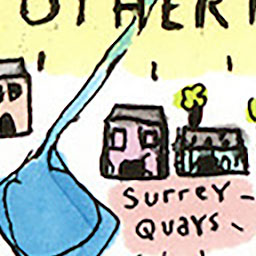 OTHER
Surrey-
Quays